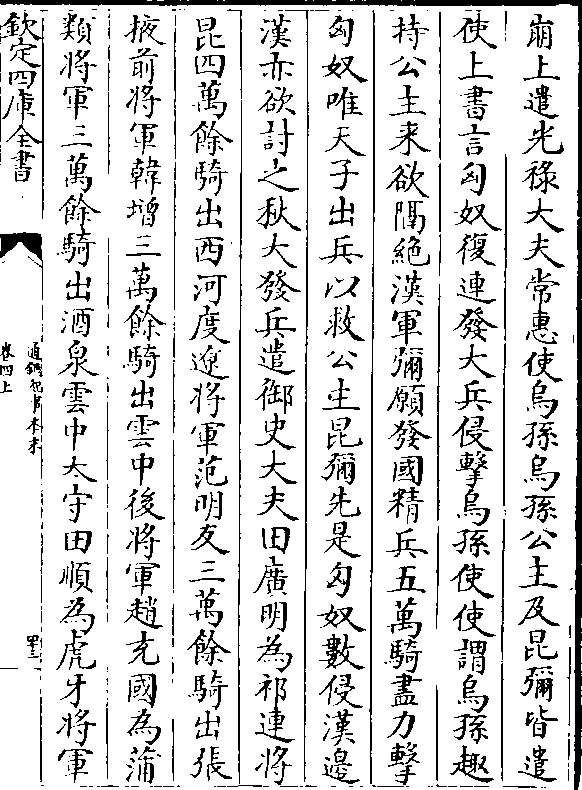 崩上遣光祿大夫常惠使烏孫烏孫公主及昆彌皆遣
使上書言匈奴復連發大兵侵擊烏孫使使謂烏孫趣
持公主来欲隔絶漢軍彌願發國精兵五萬騎盡力擊
匈奴唯天子出兵以救公主昆彌先是匈奴數侵漢邊
漢亦欲討之秋大發兵遣御史大夫田廣明為祁連將
昆四萬餘騎出西河度遼将軍范明友三萬餘騎出張
掖前将軍韓增三萬餘騎出雲中後将軍趙充國為蒲
類将軍三萬餘騎出酒泉雲中太守田順為虎牙将軍
欽定四庫全書
通鑑紀事本末
卷四上